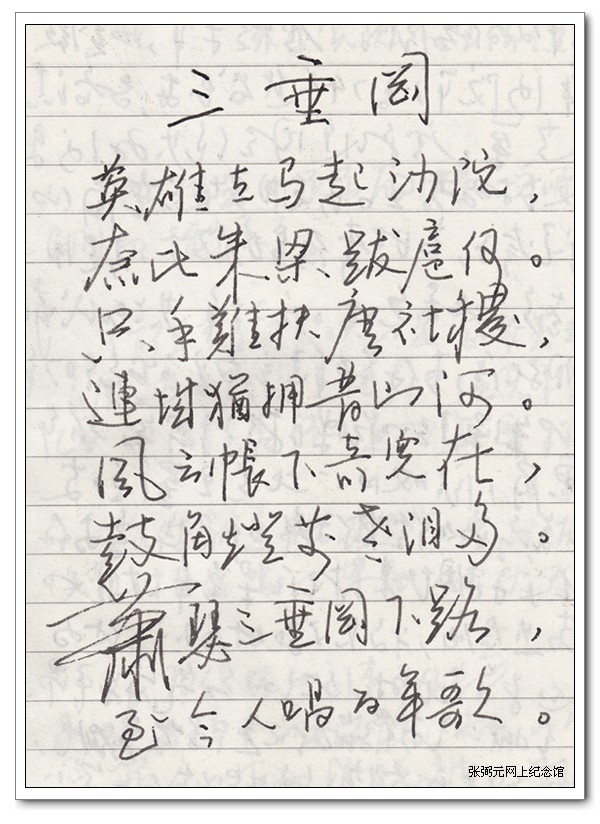 三垂岡
英雄立马起沙陀，
奈此朱梁跋扈何。
只手難扶唐社稷，
連城猶拥晋山河。
風云帳下奇兒在，
鼓角燈前老泪多。
蕭瑟三垂岡下路，
至今人唱百年歌。
张弼元网上纪念馆